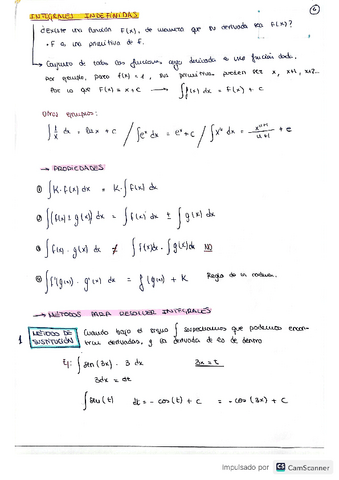 6
INTEGRALES INDEFINIDAS
¿Existe una función F(x), de manera que su derivada sea f(x)?
• F es una primitiva de f.
→ Conjunto de todas las funciones, cuya derivada es una función dada.
por ejemplo, para f(x) = 1, sus primitivas pueden ser x, x+1, x+2...
Por lo que F(x) = x + c → ∫f(x) dx = F(x) + c
Otros ejemplos:
∫ 1/x dx = ln x + c / ∫eˣ dx = eˣ + c / ∫xⁿ dx = xⁿ⁺¹/n+1 + c
→ PROPIEDADES
① ∫K · f(x) dx = K · ∫f(x) dx
② ∫(f(x) ± g(x)) dx = ∫f(x) dx ± ∫g(x) dx
③ ∫f(x) · g(x) dx ≠ ∫f(x)dx · ∫g(x)dx NO
④ ∫f'(g(x)) · g'(x) dx = f(g(x)) + K Regla de la cadena.
→ MÉTODOS PARA RESOLVER INTEGRALES
1 MÉTODO DE SUSTITUCIÓN Cuando bajo el signo ∫ sospechamos que podemos encon-
trar derivadas, y la derivada de lo de dentro
Ej: ∫ sen (3x) · 3 dx 3x = t
3dx = dt
∫ sen (t) dt = - cos (t) + c = - cos (3x) + c
Impulsado por CS CamScanner